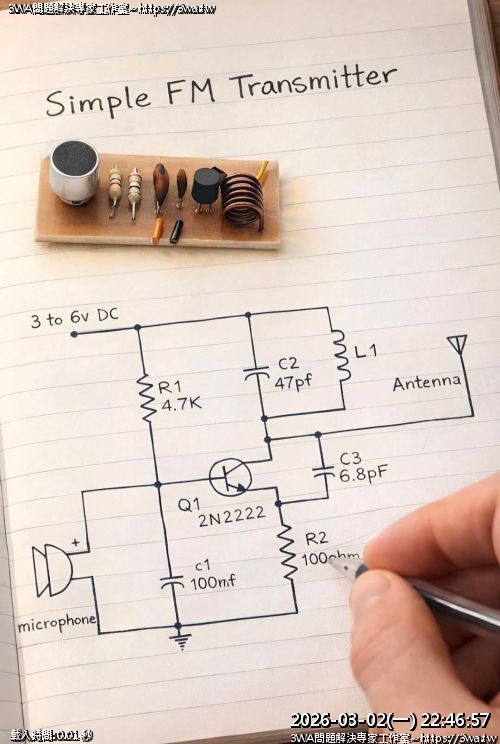 3WA問題解決專家工作室~https://3wa.tw
Simple FM Transmitter
3 to 6v DC
R1
4.7K
C2
47pf
L1
Antenna
C3
6.8pF
Q1
2N2222
R2
100ohm
c1
100nf
+
microphone
2026-03-02(一) 22:46:57
載入時間:0.01 秒
3WA問題解決專家工作室~https://3wa.tw